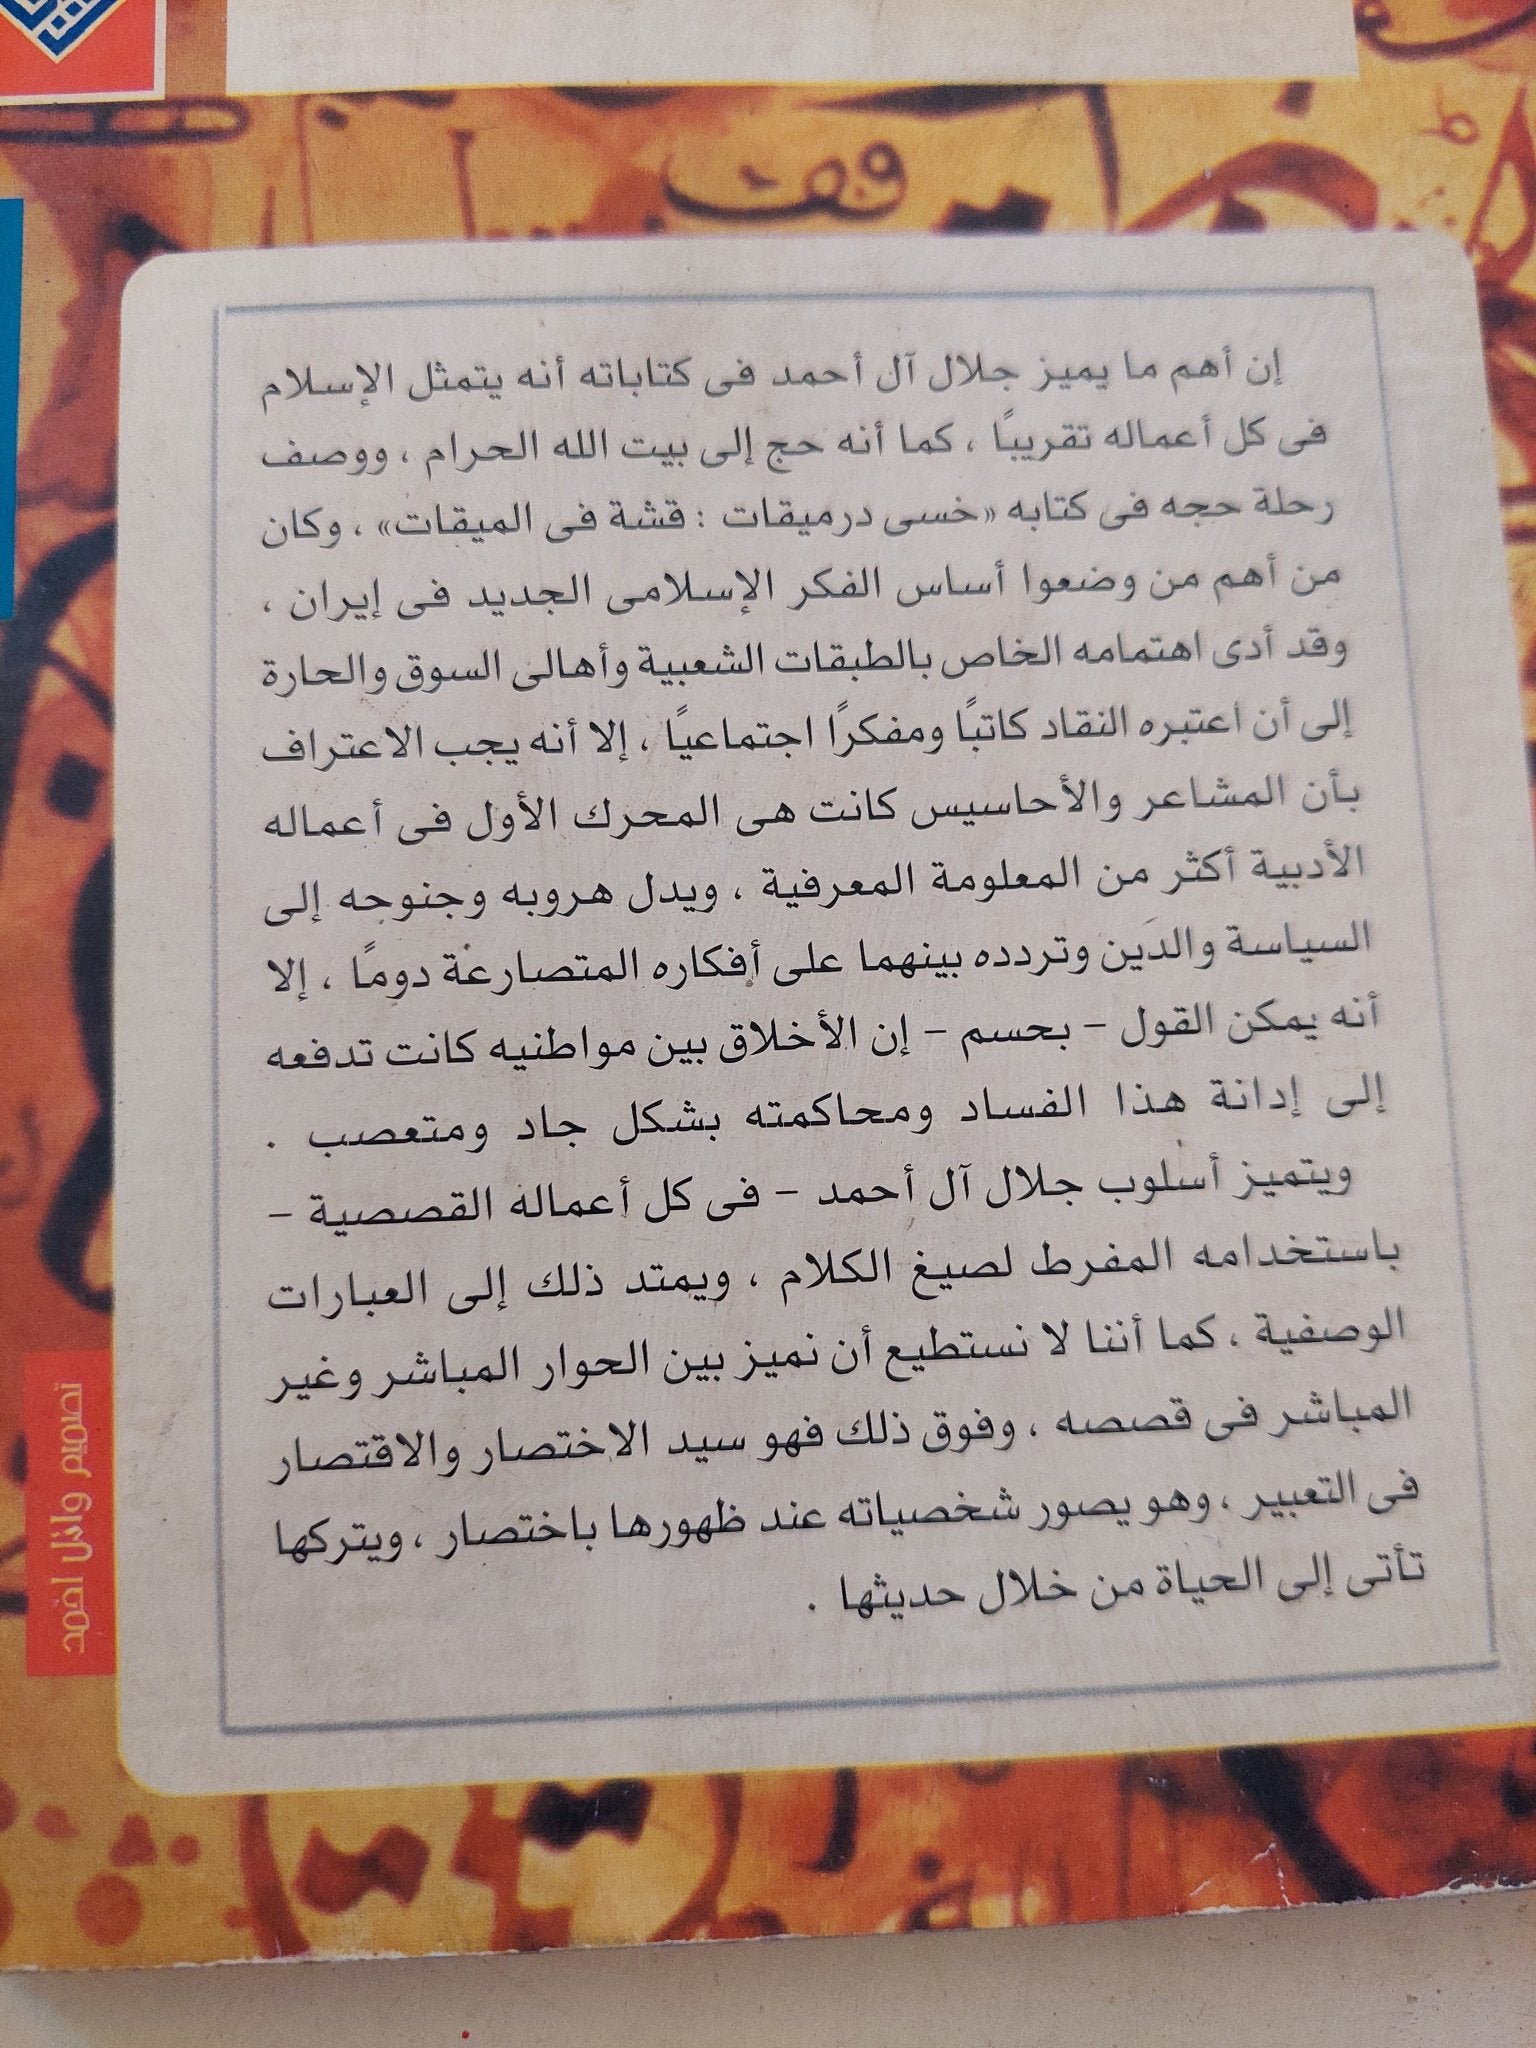 إن أهم ما يميز جلال آل أحمد فى كتاباته أنه يتمثل الإسلام
فى كل أعماله تقريبًا ، كما أنه حج إلى بيت الله الحرام ، ووصف
رحلة حجه فى كتابه «خسى درميقات : قشة فى الميقات» ، وكان
من أهم من وضعوا أساس الفكر الإسلامى الجديد فى إيران ،
وقد أدى اهتمامه الخاص بالطبقات الشعبية وأهالى السوق والحارة
إلى أن اعتبره النقاد كاتبًا ومفكرًا اجتماعيًا ، إلا أنه يجب الاعتراف
بأن المشاعر والأحاسيس كانت هى المحرك الأول فى أعماله
الأدبية أكثر من المعلومة المعرفية ، ويدل هروبه وجنوحه إلى
السياسة والدين وتردده بينهما على أفكاره المتصارعة دومًا ، إلا
أنه يمكن القول – بحسم – إن الأخلاق بين مواطنيه كانت تدفعه
إلى إدانة هذا الفساد ومحاكمته بشكل جاد ومتعصب .
ويتميز أسلوب جلال آل أحمد – فى كل أعماله القصصية –
باستخدامه المفرط لصيغ الكلام ، ويمتد ذلك إلى العبارات
الوصفية ، كما أننا لا نستطيع أن نميز بين الحوار المباشر وغير
المباشر فى قصصه ، وفوق ذلك فهو سيد الاختصار والاقتصار
فى التعبير ، وهو يصور شخصياته عند ظهورها باختصار ، ويتركها
تأتى إلى الحياة من خلال حديثها .
تصميم وائل أحمد